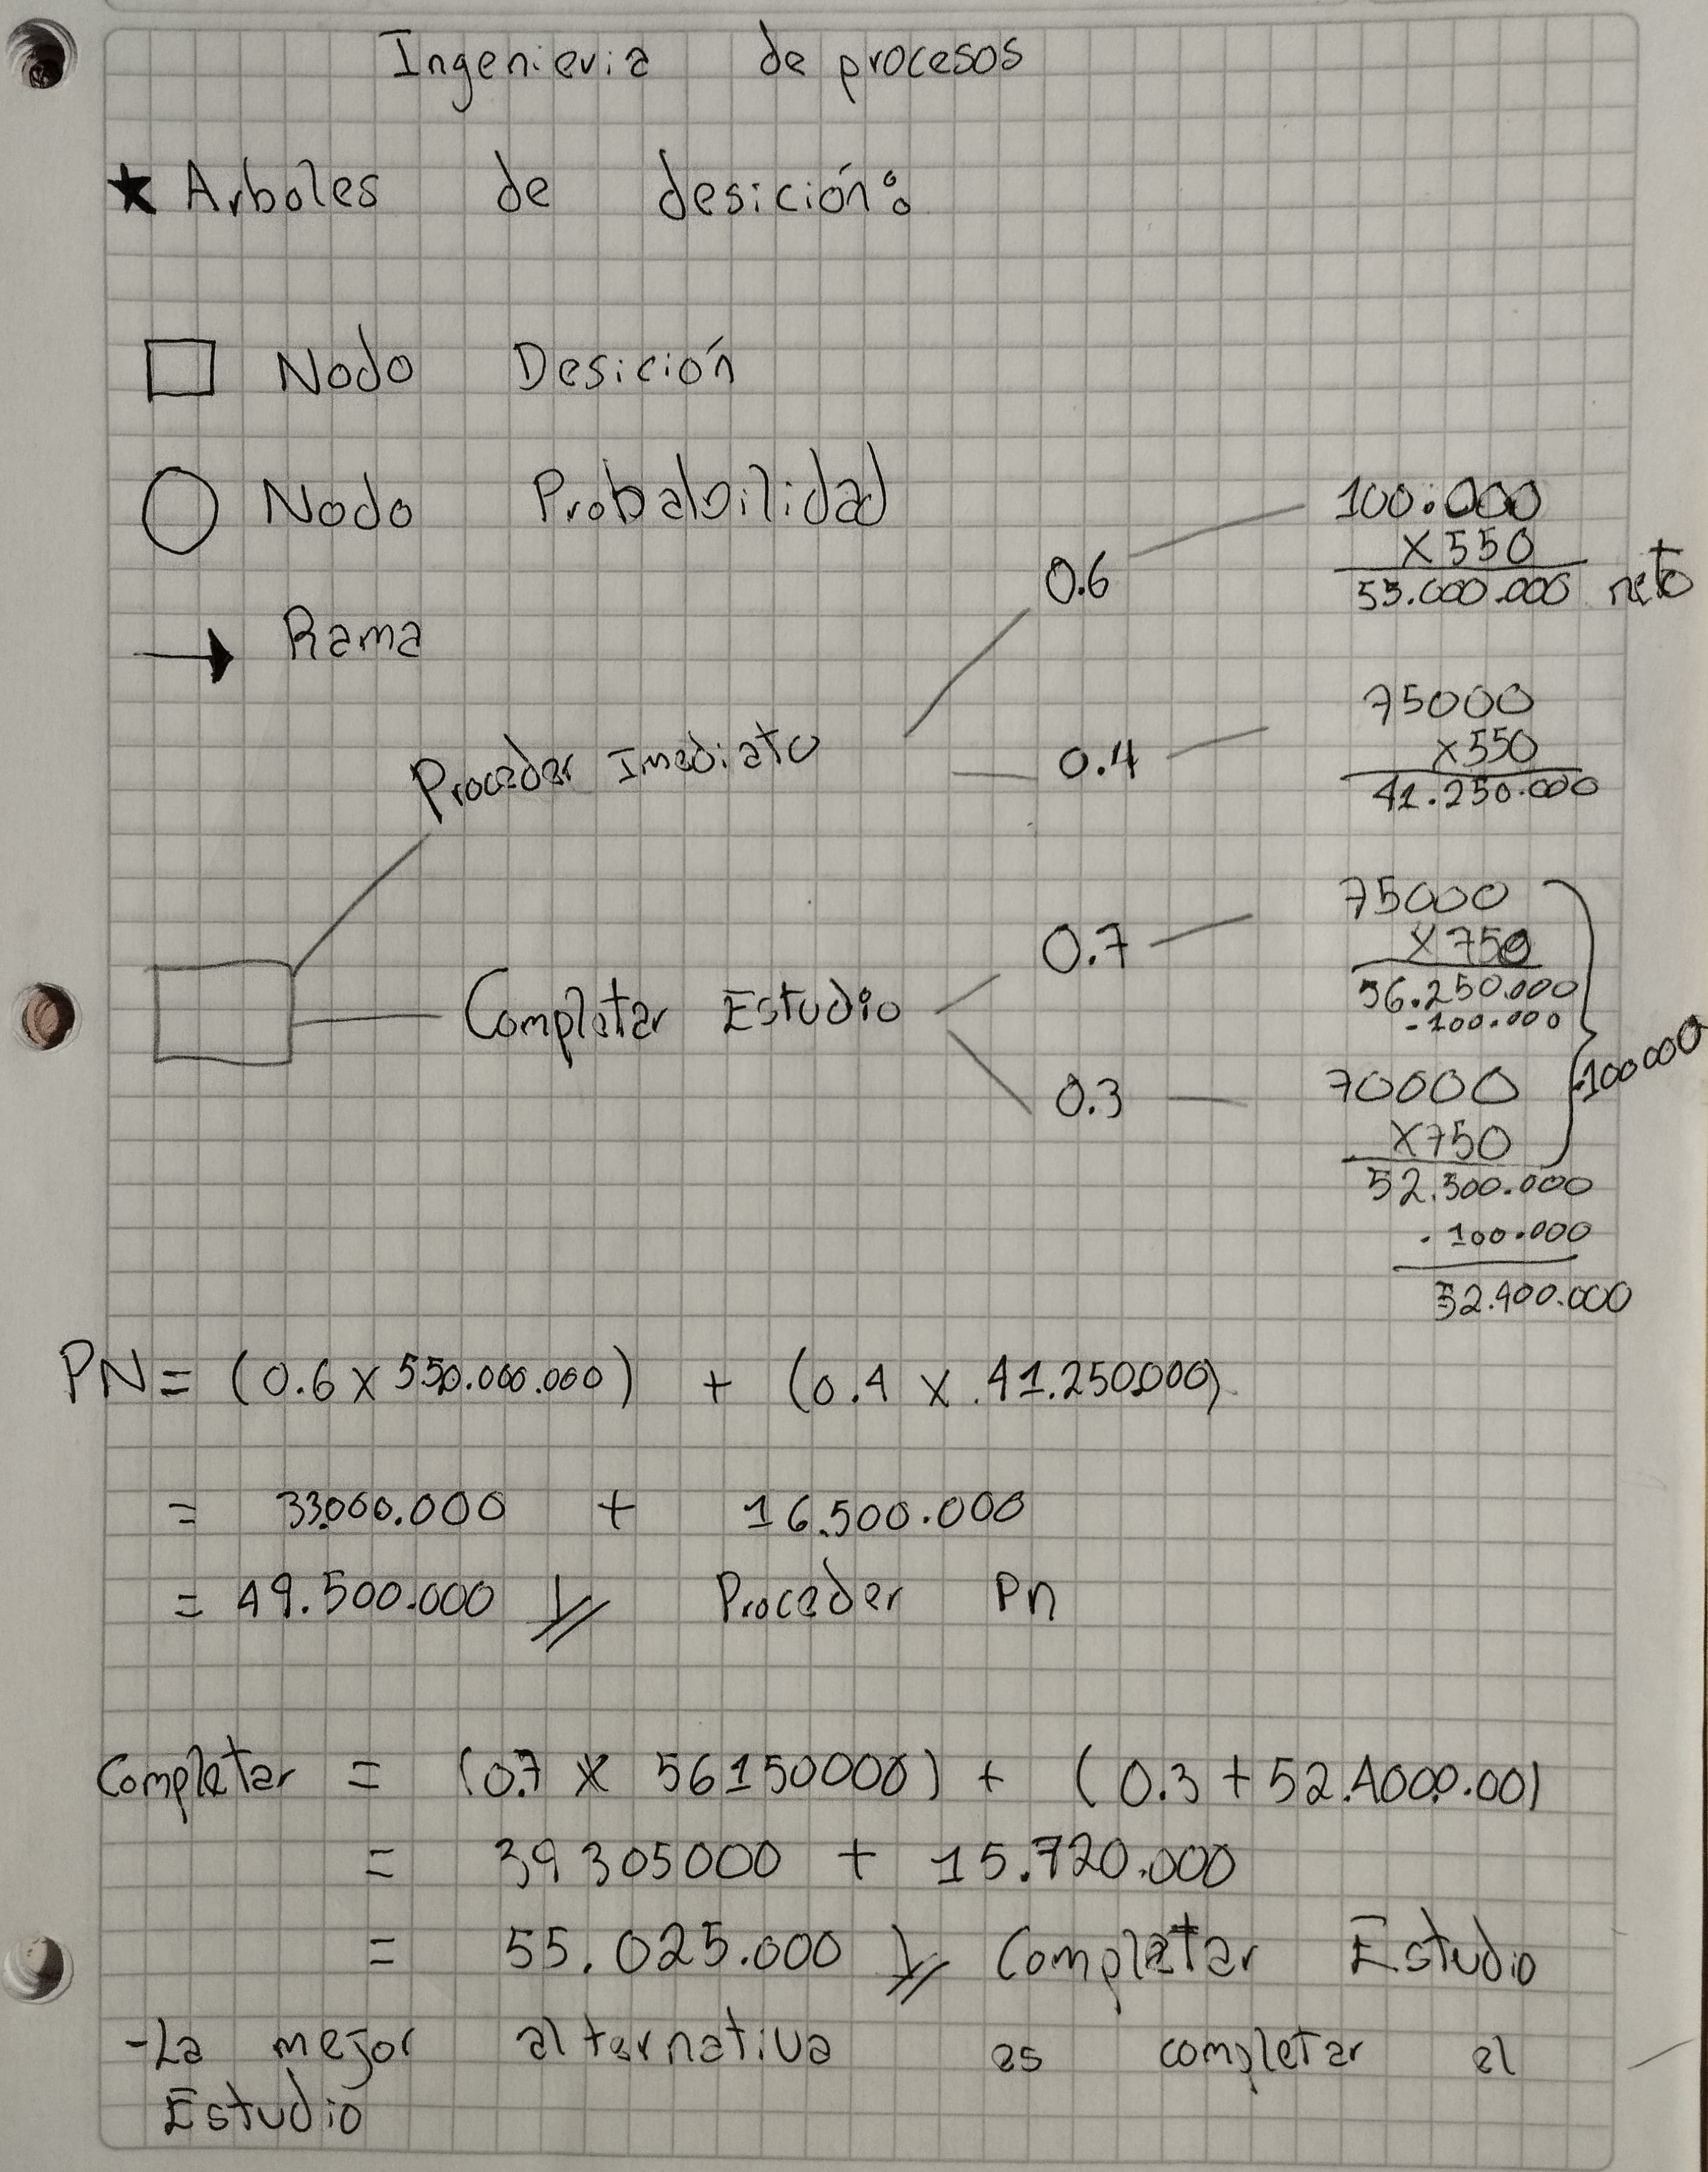 Ingenieria de procesos
★ Arboles de desición:
Nodo Desición
Nodo Probabilidad
Rama
Proceder Imediato
0.6
100.000
X550
55.000.000 neto
0.4
75000
x550
41.250.000
Completar Estudio
0.7
75000
X750
56.250.000
-100.000
0.3
70000
X750
52.500.000
- 100.000
52.400.000
-100000
PN = (0.6 x 550.000.000) + (0.4 x .41.250000)
= 33000.000 + 16.500.000
= 49.500.000 Proceder Pn
Completar = (0.7 x 56150000) + (0.3 + 52.4000.00)
= 39305000 + 15.720.000
= 55.025.000 Completar Estudio
-La mejor alternativa es completar el
Estudio